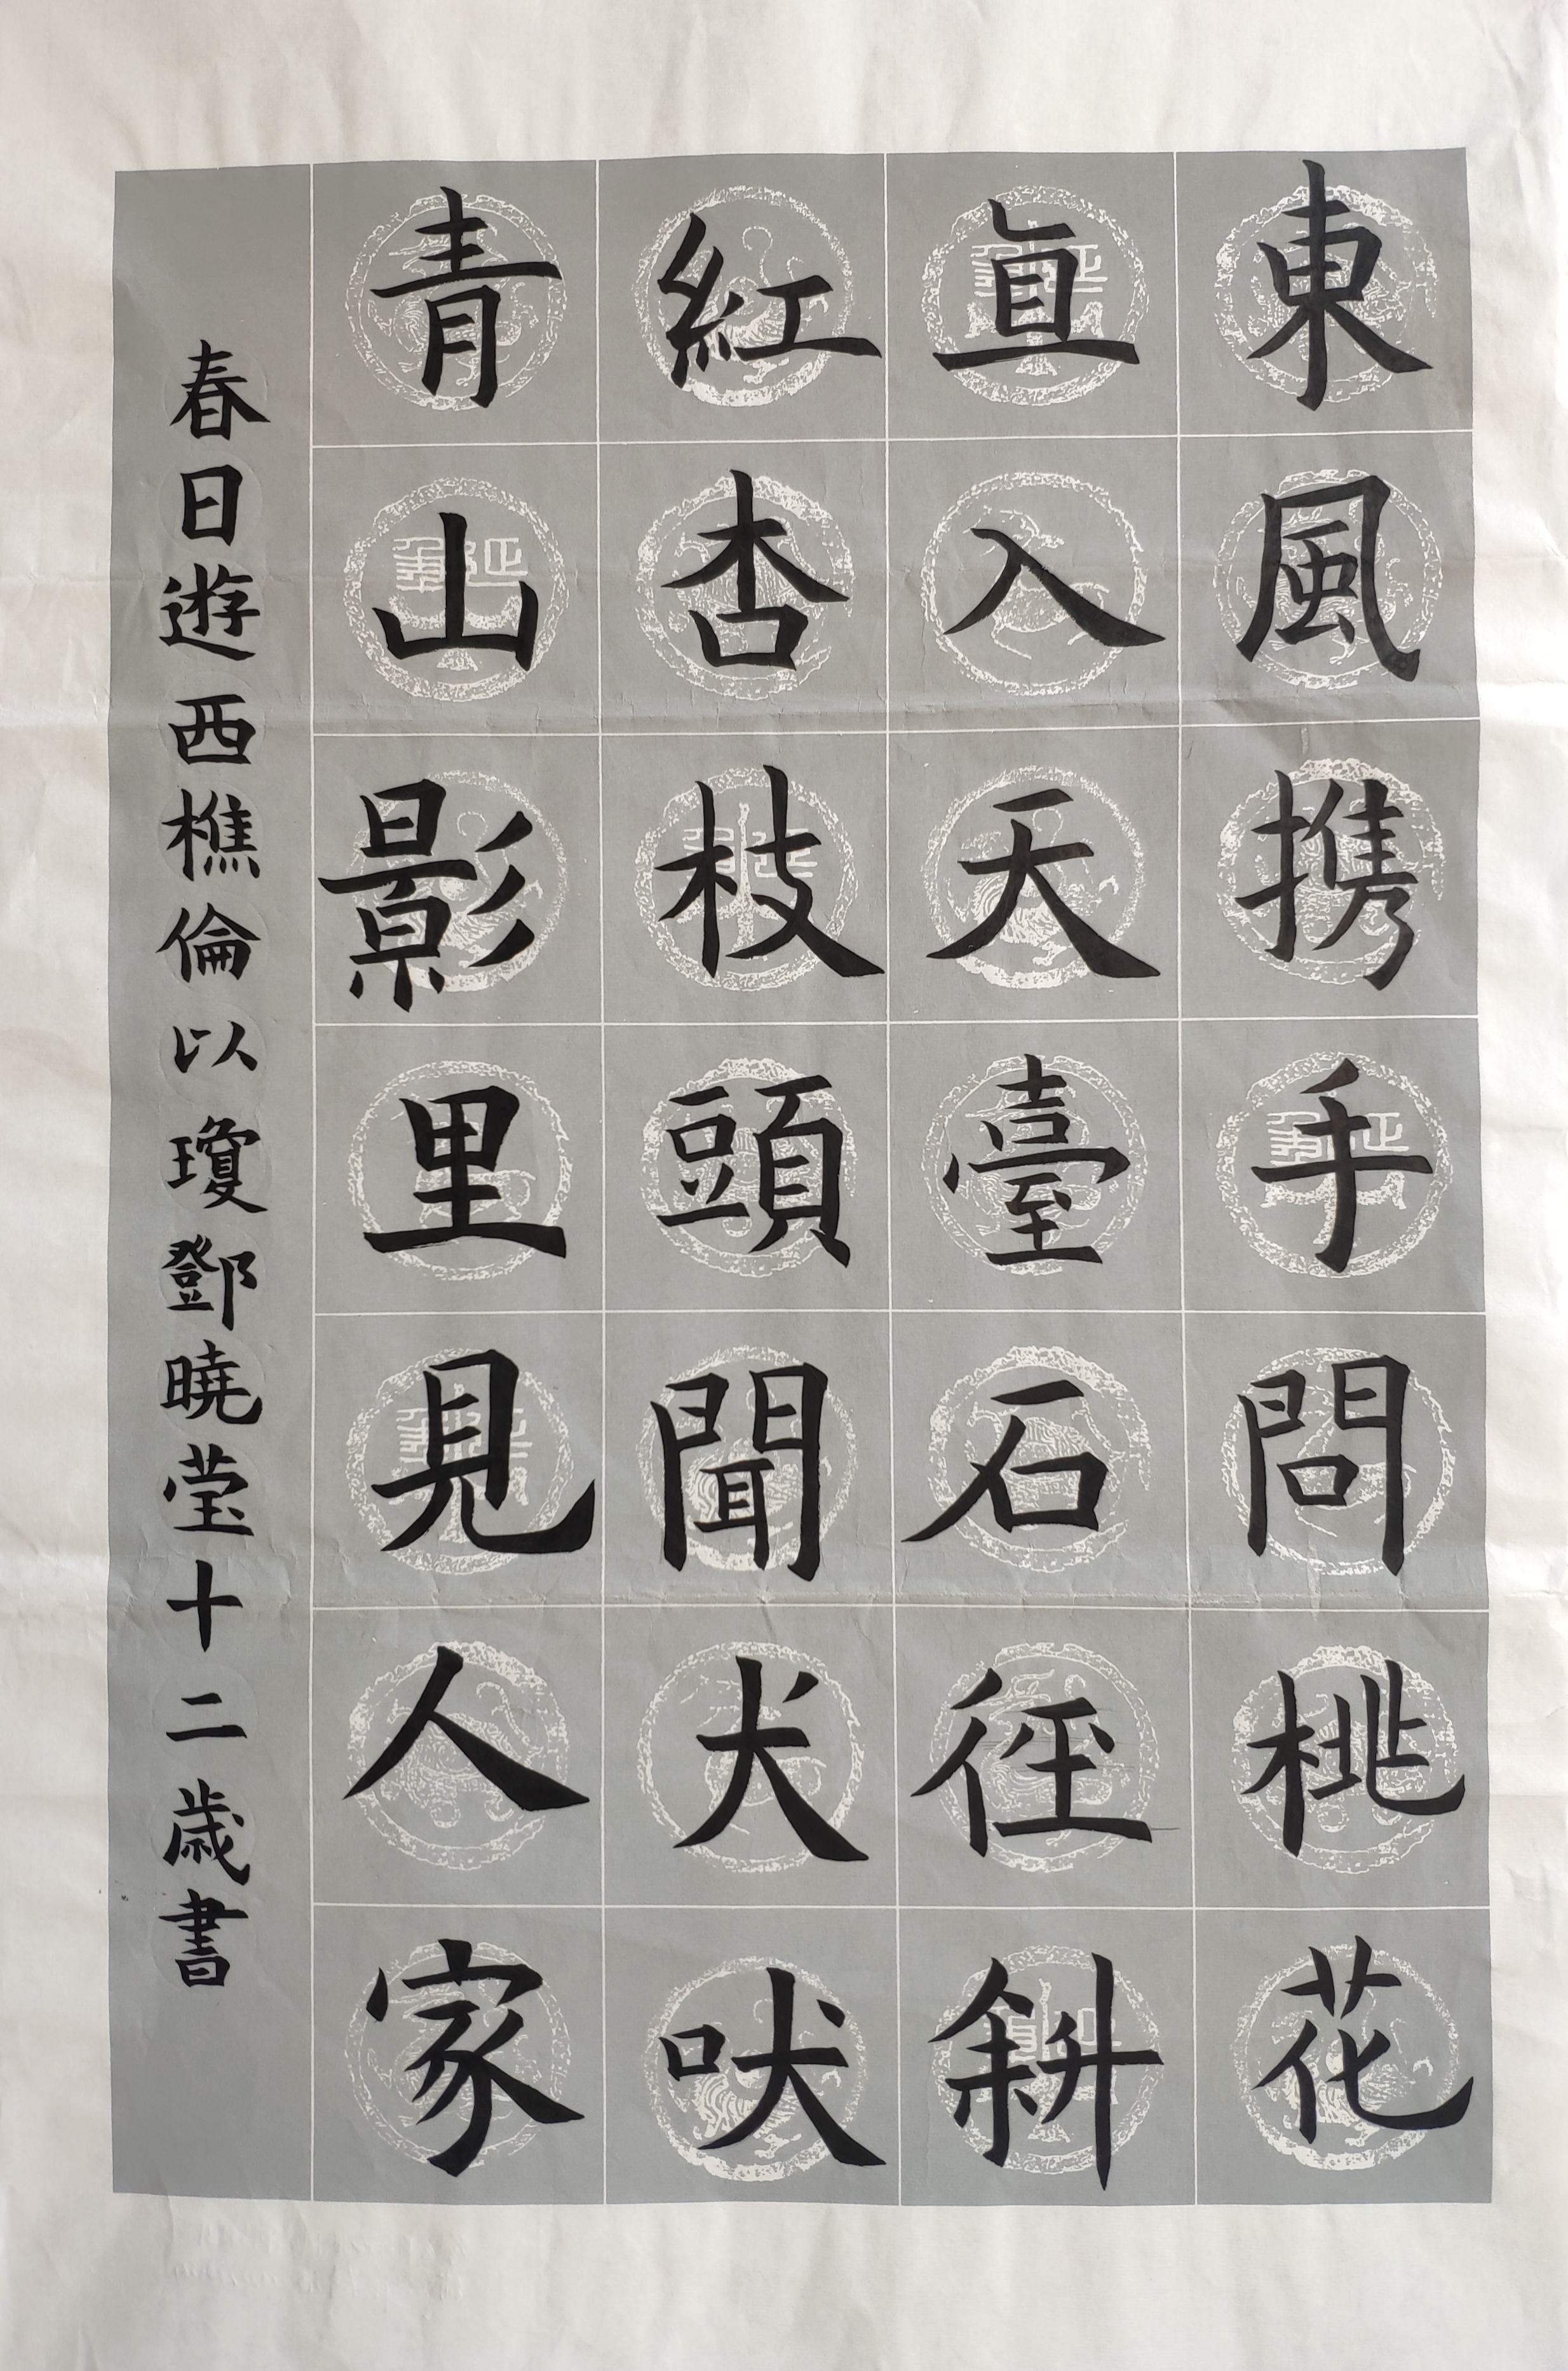 東風携手問桃花
直入天臺石徑斜
紅杏枝頭聞犬吠
青山影里見人家
春日遊西樵倫以瓊鄧曉莹十二歳書